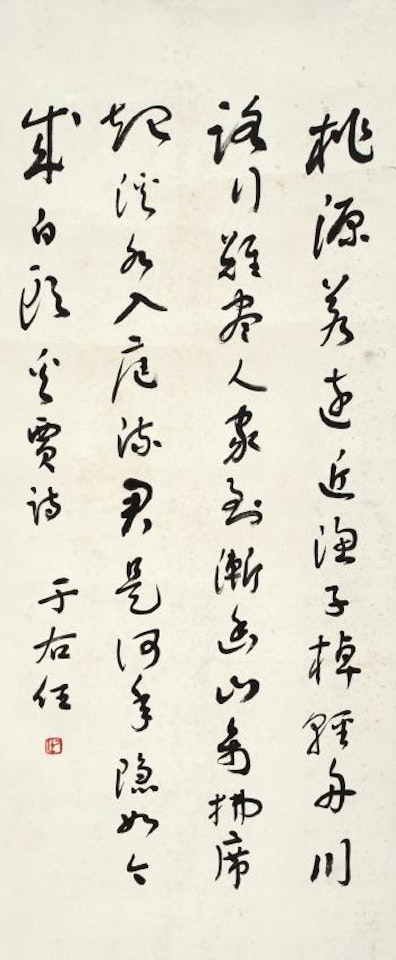 桃源若遠近漁子棹輕舟川
路行難盡人家到漸幽山禽拂席
起溪水入庭流君是何年隱如今
成白頭賈詩
于右任